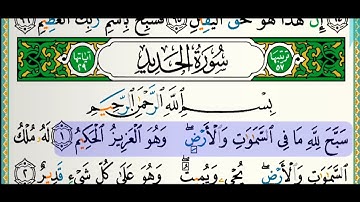 إِنَّ هَٰذَا هُوَ حَقُّ الْيَقِينِ ۝٩٥ فَسَبِّحْ بِاسْمِ رَبِّكَ الْعَظِيمِ ۝٩٦
ترتيبها ٥٧ سُورَةُ الْحَدِيدِ آياتها ٢٩
بِسْمِ اللَّهِ الرَّحْمَٰنِ الرَّحِيمِ
سَبَّحَ لِلَّهِ مَا فِي السَّمَٰوَٰتِ وَالْأَرْضِ ۖ وَهُوَ الْعَزِيزُ الْحَكِيمُ ۝١ لَهُ مُلْكُ
السَّمَٰوَٰتِ وَالْأَرْضِ ۖ يُحْيِي وَيُمِيتُ ۖ وَهُوَ عَلَىٰ كُلِّ شَيْءٍ قَدِيرٌ ۝٢